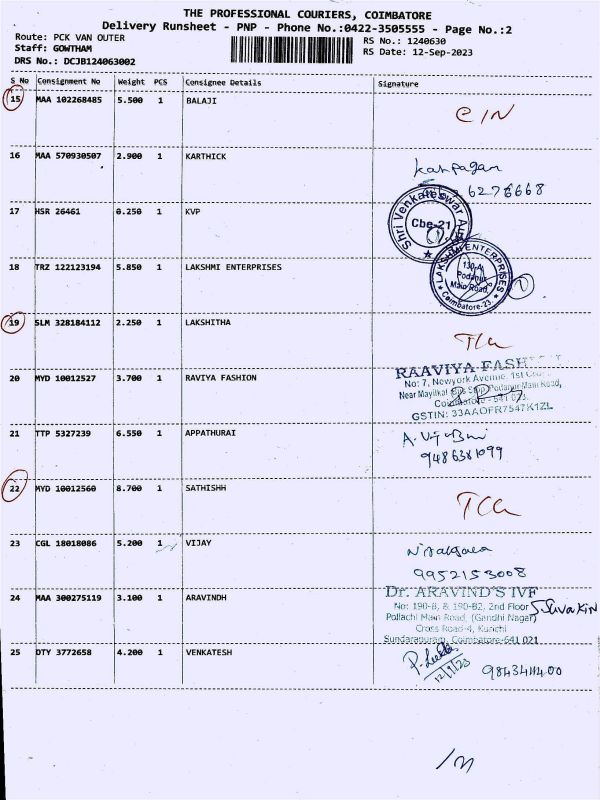 THE PROFESSIONAL COURIERS, COIMBATORE
Delivery Runsheet - PNP - Phone No.:0422-3505555 - Page No.:2
Route: PCK VAN OUTER
RS No.: 1240630
Staff: GOWTHAM
RS Date: 12-Sep-2023
DRS No.: DCJB124063002
S No Consignment No Weight PCS Consignee Details Signature
15 MAA 102268485 5.500 1 BALAJI
16 MAA 570930507 2.900 1 KARTHICK
6278668
17 HSR 26461 0.250 1 KVP
Shri Venkateswar
Cbe-21
18 TRZ 122123194 5.850 1 LAKSHMI ENTERPRISES
LAKSHMI ENTERPRISES
130-A,
Podanur
Main Road,
Coimbatore-23.
19 SLM 328184112 2.250 1 LAKSHITHA
20 MYD 10012527 3.700 1 RAVIYA FASHION
RAAVIYA FASH
No: 7, Newyork Avenue, 1st
Near Mayilkal Bus Stop, Podanur Main Road,
Coimbatore - 641 023.
GSTIN: 33AAOFR7547K1ZL
21 TTP 5327239 6.550 1 APPATHURAI
9486381099
22 MYD 10012560 8.700 1 SATHISHH
23 CGL 18018086 5.200 1 VIJAY
9952153008
24 MAA 300275119 3.100 1 ARAVINDH
Dr. ARAVIND'S IVF
No: 190-B, & 190-B2, 2nd Floor
Pollachi Main Road, (Gandhi Nagar)
Cross Road-4, Kurichi
Sundarapuram, Coimbatore-641 021
25 DTY 3772658 4.200 1 VENKATESH
12/9/23